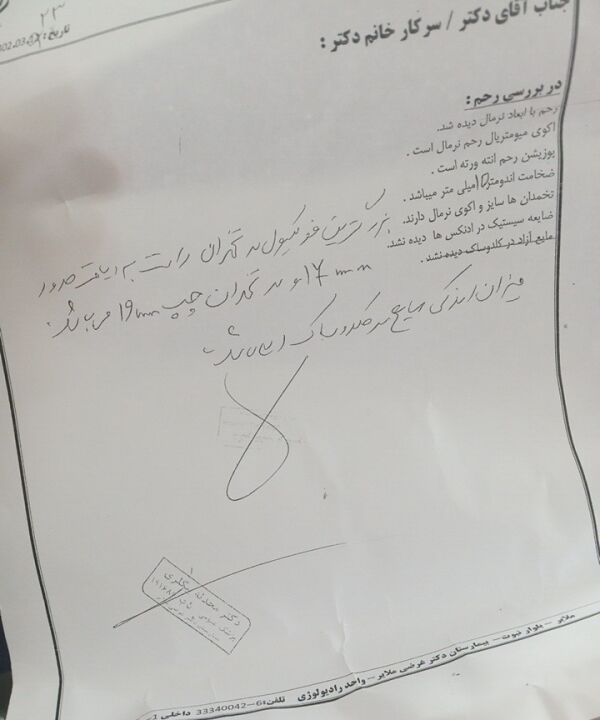 ۲۳
تاریخ:
جناب آقای دکتر / سرکار خانم دکتر :
در بررسی رحم :
رحم با ابعاد نرمال دیده شد.
اکوی میومتریال رحم نرمال است .
پوزیشن رحم انته ورته است .
ضخامت اندومتر ۱۵ میلی متر میباشد .
تخمدان ها سایز و اکوی نرمال دارند.
ضایعه سیستیک در ادنکس ها دیده نشد.
مایع آزاد در کلدوساک دیده نشد .
بزرگترین فولیکول در تخمدان راست به ابعاد حدود
۱۷ mm و در تخمدان چپ ۱۹ mm می باشد.
میزان اندکی مایع در کلدوساک
دکتر
ملایر - بلوار نبوت - بیمارستان دکتر غرضی ملایر - واحد رادیولوژی تلفن: 6-33340042 داخلی